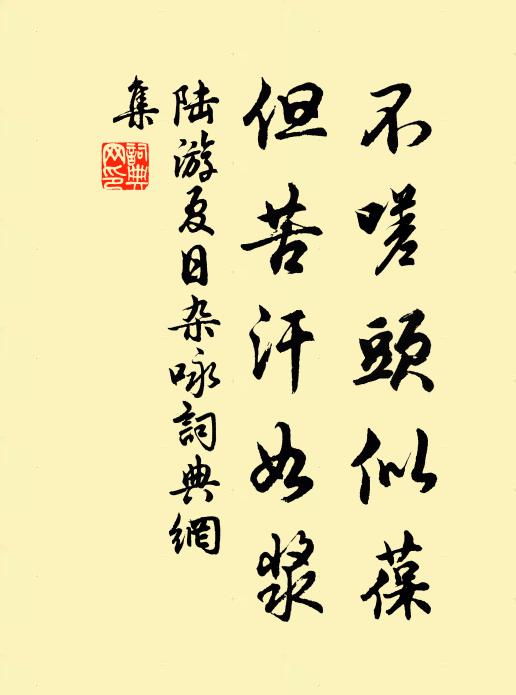 不嗟頭似葆
但苦汗如漿
陆游夏日杂咏詞典網
集
詞典网印